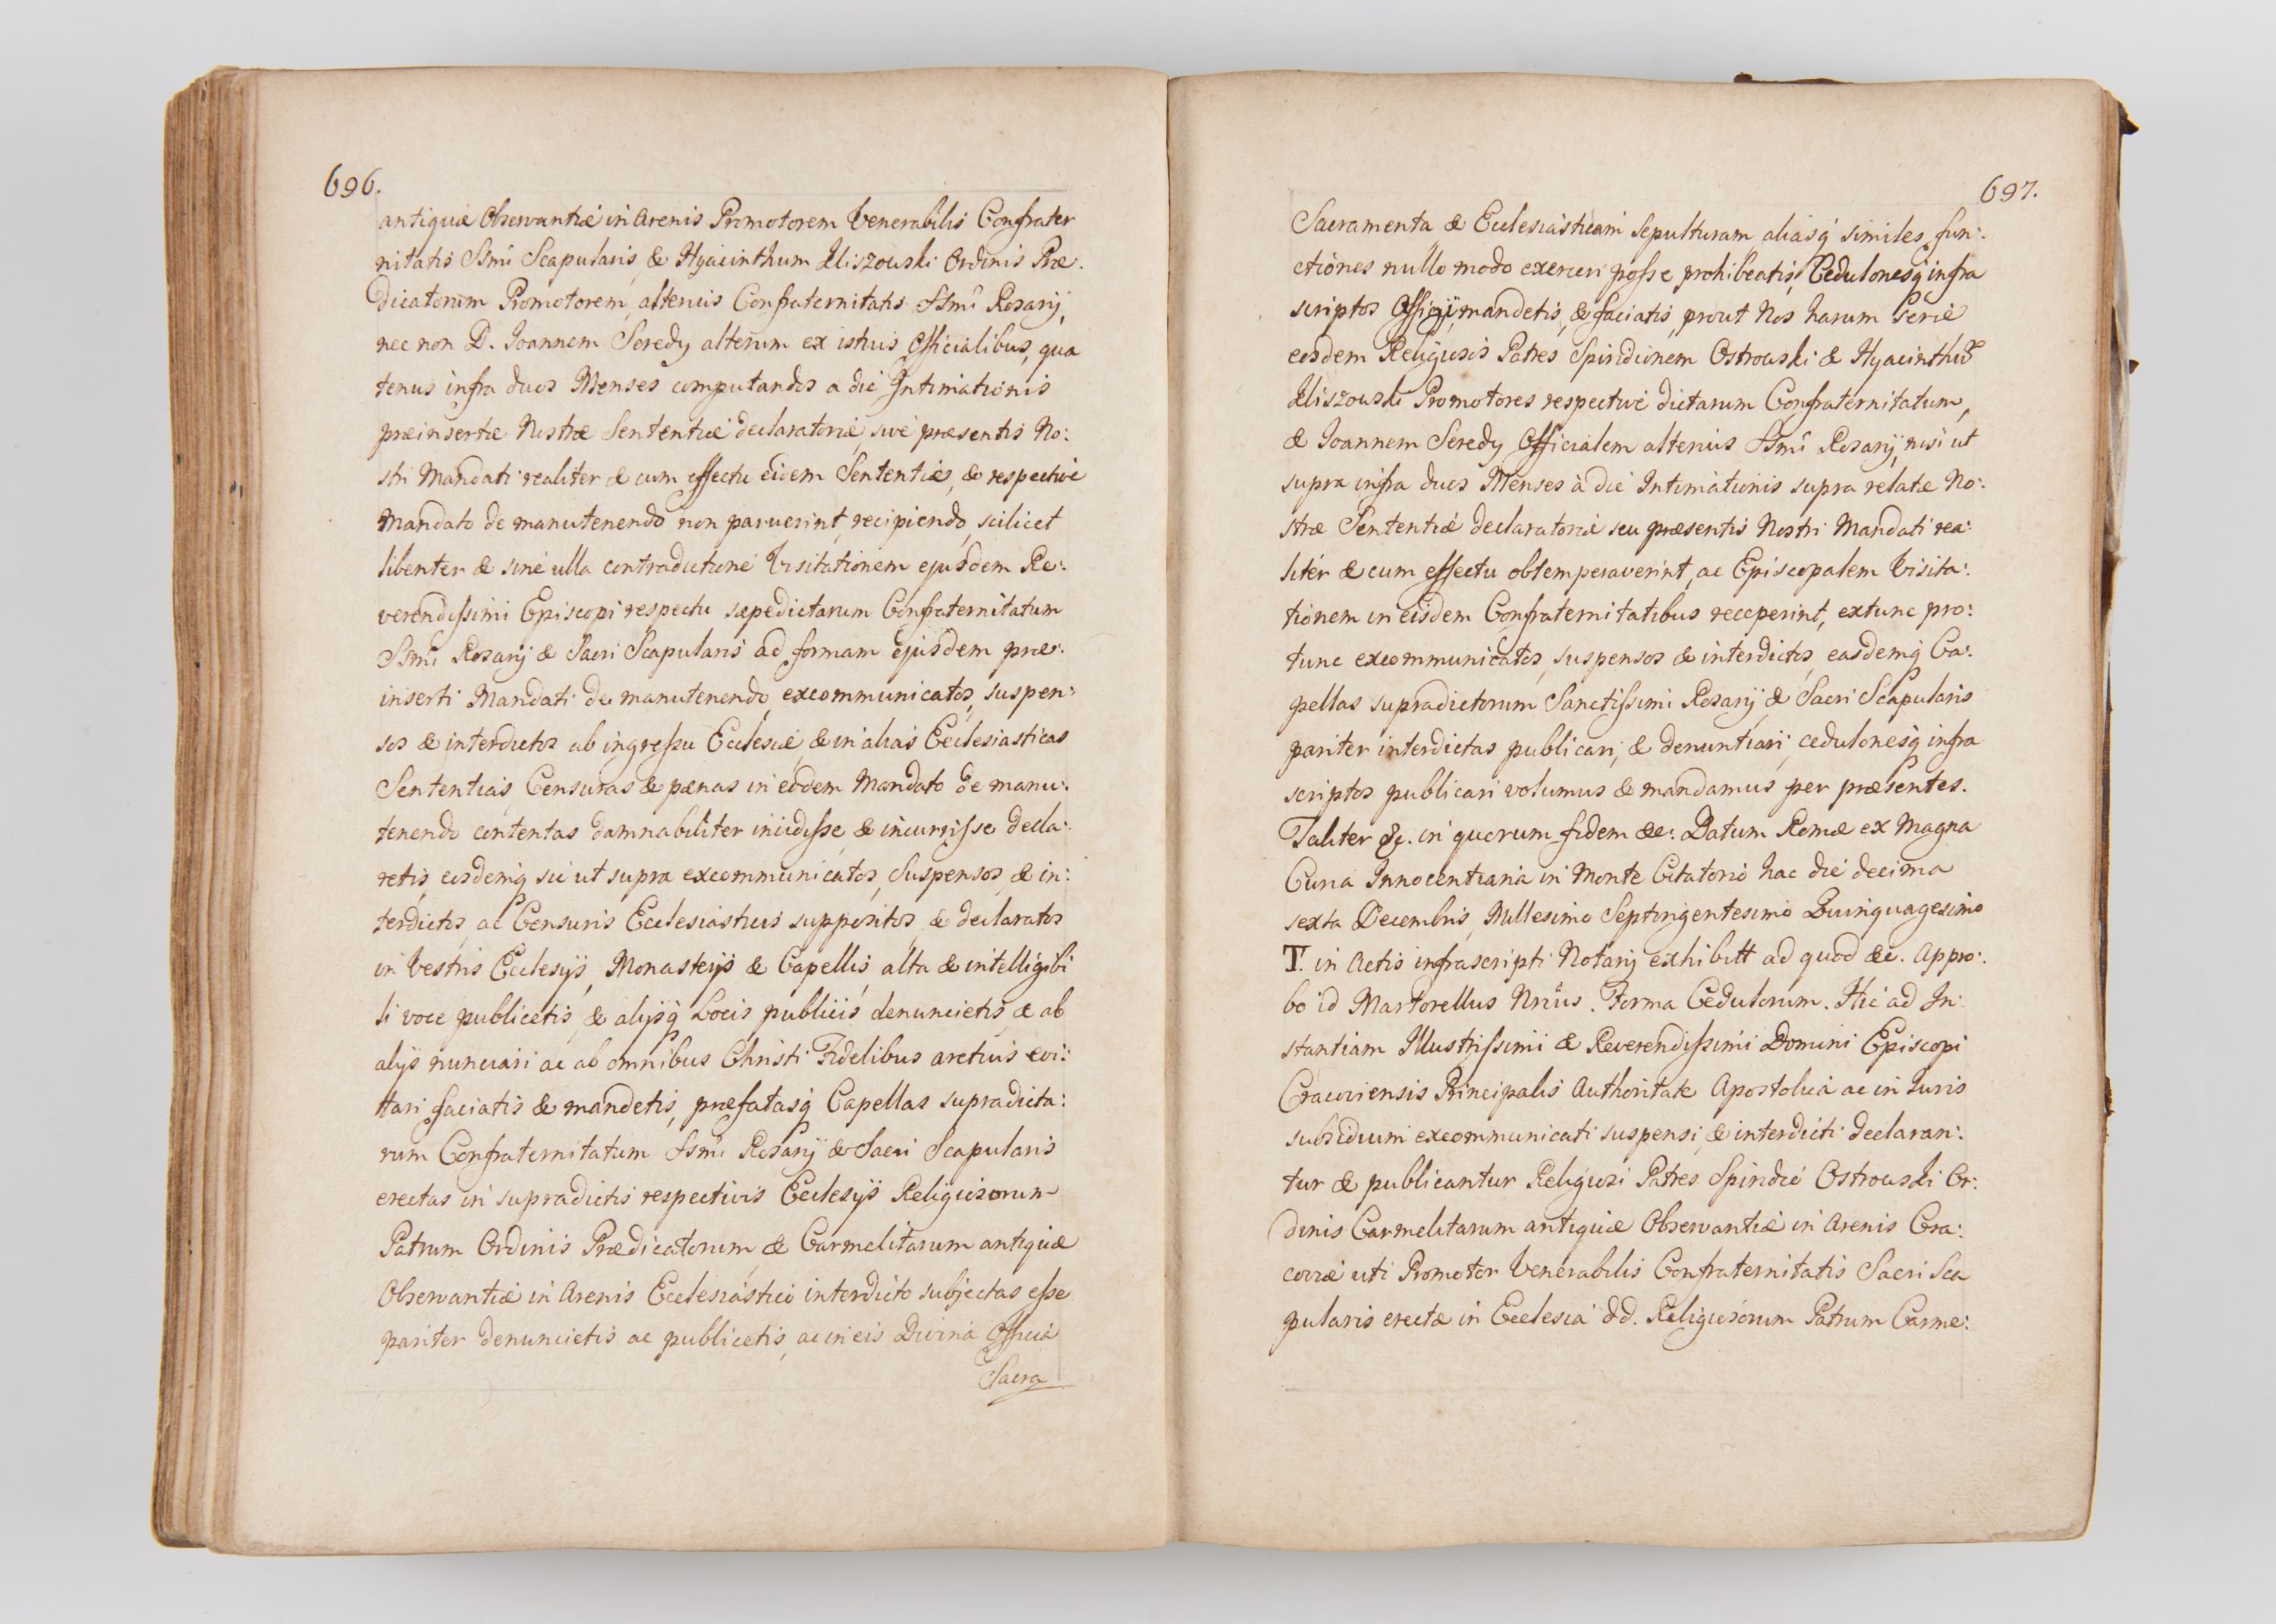 696.
antiquæ Observantiæ in Arenis Promotorem Venerabilis Confrater
nitatis SSmi Scapularis, & Hyacinthum Kliszowski Ordinis Præ:
dicatorum Promotorem, alterius Confraternitatis SSmi Rosarij,
nec non D. Ioannem Seredy alterum ex istius Officialibus, qua
tenus infra duos Menses computandos a die Intimationis
præinsertæ Nostræ Sententiæ declaratoriæ, sive præsentis No:
stri Mandati realiter & cum effectu eidem Sententiæ, & respective
Mandato de manutenendo non paruerint, recipiendo, scilicet
libenter & sine ulla contradictione Visitationem ejusdem Re:
verendissimi Episcopi respectu sæpedictarum Confraternitatum
SSmi Rosarij & Sacri Scapularis ad formam ejusdem præ:
inserti Mandati de manutenendo, excommunicatos, suspen:
sos & interdictos ab ingressu Ecclesiæ, & in alias Ecclesiasticas
Sententias, Censuras & pænas in eodem Mandato de manu:
tenendo contentas damnabiliter incidisse, & incurrisse decla:
retis, eosdemq sic ut supra excommunicatos, Suspensos, & in:
terdictos, ac Censuris Ecclesiasticis suppositos, & declaratos
in Vestris Ecclesijs, Monasterijs & Capellis, alta & intelligibi
li voce publicetis, & alijsq Locis publicis denuncietis, & ab
alijs nunciari ac ab omnibus Christi Fidelibus arctius evi:
ttari faciatis & mandetis, præfatasq Capellas supradicta:
rum Confraternitatum SSmi Rosarij & Sacri Scapularis
erectas in supradictis respectivis Ecclesijs Religiosorum
Patrum Ordinis Prædicatorum, & Carmelitarum antiquæ
Observantiæ in Arenis Ecclesiastico interdicto subjectas esse
pariter denuncietis ac publicetis, ac in eis Divina Officia
Sacra
697.
Sacramenta & Ecclesiasticam Sepulturam, aliasq similes fun:
ctiones nullo modo exerceri posse prohibeatis, Cedulonesq infra
scriptos affigi mandetis, & faciatis, prout Nos harum Serie
eosdem Religiosos Patres Spiridionem Ostrowski & Hyacinthū
Kliszowski Promotores respective dictarum Confraternitatum,
& Ioannem Seredy Officialem alterius SSmi Rosarij, nisi ut
supra infra duos Menses à die Intimationis supra relatæ No:
stræ Sententiæ declaratoriæ seu præsentis Nostri Mandati rea:
liter & cum effectu obtemperaverint, ac Episcopalem Visita:
tionem in eisdem Confraternitatibus receperint, extunc pro:
tunc excommunicatos, suspensos & interdictos, easdemq Ca:
pellas supradictorum Sanctissimi Rosarij & Sacri Scapularis
pariter interdictas publicari, & denuntiari, cedulonesq infra
scriptos publicari volumus & mandamus per præsentes.
Taliter &c. in quorum fidem &c: Datum Romæ ex Magna
Curia Innocentiana in Monte Citatorio hac die decima
sexta Decembris, Millesimo Septingentesimo Quinquagesimo
T. in Actis infrascripti Notarij exhibitt ad quod &c. Appro:
bo id Martorellus Nrius. Forma Cedulorum. Hic ad In:
stantiam Illustrissimi & Reverendissimi Domini Episcopi
Cracoviensis Principalis Authoritate Apostolica ac in Iuris
subsidium excommunicati suspensi, & interdicti declaran:
tur & publicantur Religiosi Patres Spiridio Ostrowski Or:
dinis Carmelitarum antiquæ Observantiæ in Arenis Cra:
coviæ uti Promotor Venerabilis Confraternitatis Sacri Sca
pularis erectæ in Ecclesia dd. Religiosorum Patrum Carme: